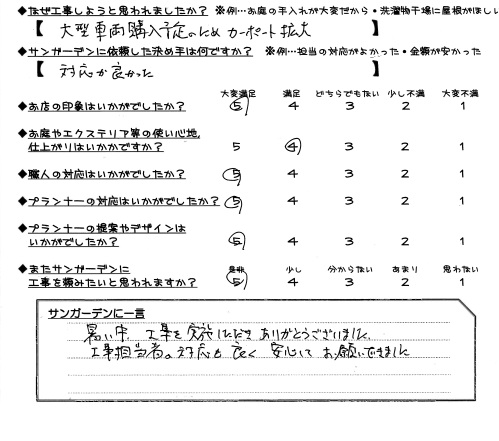 ◆なぜ工事しようと思われましたか？ ※例…お庭の手入れが大変だから・洗濯物干場に屋根がほしい
【 大型車両購入予定のため カーポート拡大 】
◆サンガーデンに依頼した決め手は何ですか？ ※例…担当の対応がよかった・金額が安かった
【 対応が良かった 】
大変満足 満足 どちらでもない 少し不満 大変不満
◆お店の印象はいかがでしたか？ 5 4 3 2 1
◆お庭やエクステリア等の使い心地、
仕上がりはいかかですか？ 5 4 3 2 1
◆職人の対応はいかがでしたか？ 5 4 3 2 1
◆プランナーの対応はいかがでしたか？ 5 4 3 2 1
◆プランナーの提案やデザインは
いかがでしたか？ 5 4 3 2 1
◆またサンガーデンに 是非 少し 分からない あまり 思わない
工事を頼みたいと思われますか？ 5 4 3 2 1
サンガーデンに一言
暑い中、工事を実施いただき ありがとうございました。
工事担当者の対応も良く 安心して お願いできました